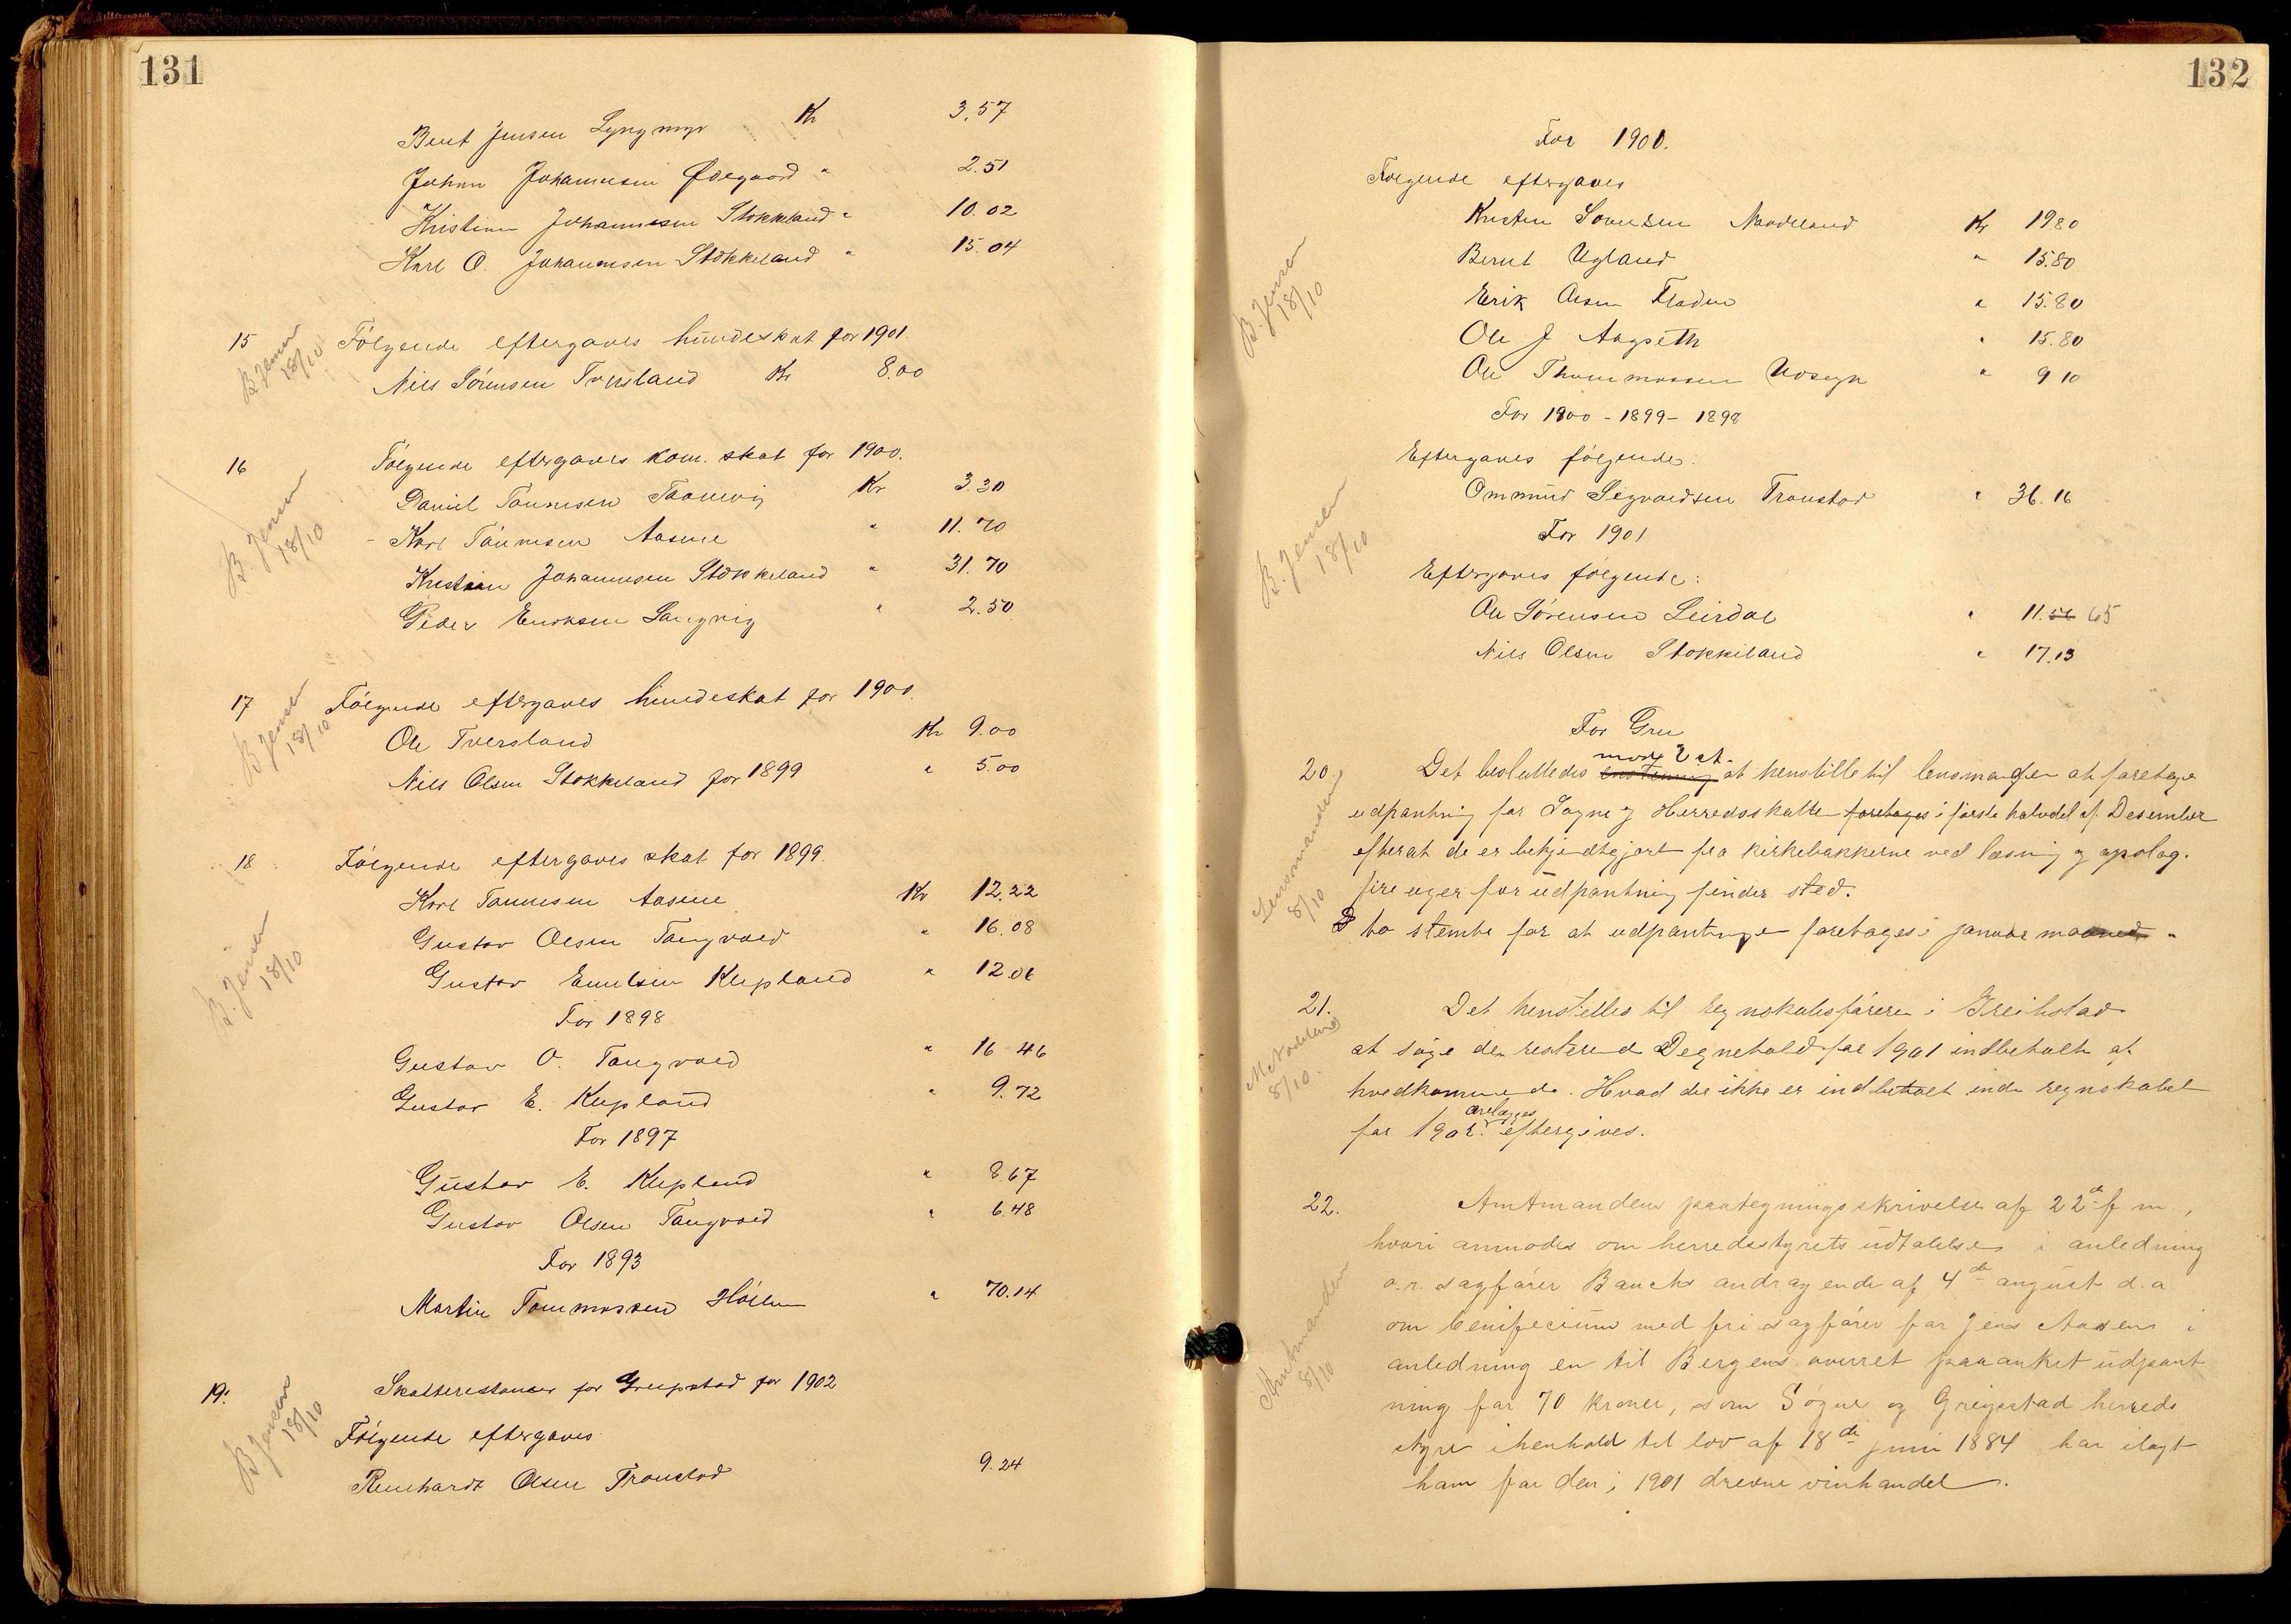 131
Bent Jensen Lyngmyr Kr 3.57
Johan Johannesen Ødegaard " 2.51
Kristian Johannesen Stokkeland " 10.02
Karl O. Johannesen Stokkeland " 15.04
B. Jensen 18/10
15 Følgende eftergaves hundeskat for 1901.
Nils Sørensen Tversland Kr 8.00
B. Jensen 18/10
16 Følgende eftergaves kom. skat for 1900.
Daniel Tønnesen Kr 3.30
Karl Tønnesen Aasene " 11.70
Kristian Johannesen Stokkeland " 31.70
Peder Eriksen Langvig " 2.50
B. Jensen 18/10
17 Følgende eftergaves hundeskat for 1900.
Ole Tversland Kr 9.00
Nils Olsen Stokkeland for 1899 " 5.00
B. Jensen 18/10
18 Følgende eftergaves skat for 1899.
Karl Tønnesen Aasene Kr 12.22
Gustav Olsen Tangvald " 16.08
Gustav Emilsen Klepland " 12.06
For 1898
Gustav O. Tangvald " 16 46
Gustav E. Klepland " 9.72
For 1897
Gustav E. Klepland " 8.67
Gustav Olsen Tangvald " 6.48
For 1893
Martin Tommassen Høllen " 70.14
B. Jensen 18/10
19. Skatterestancer for Greipstad for 1902
Følgende eftergaves
Reinhardt Olsen Tronstad 9.24
132
For 1900.
Følgende eftergaves
Kristen Sørensen Nordeland Kr 19 80
B. Jensen 18/10
Bernt Ugland " 15.80
Erik Olsen Fladen " 15.80
Ole J " 15.80
Ole Thommassen " 9 10
For 1900 - 1899 - 1898
Eftergaves følgende:
Ommund Sigvaldsen Tronstad " 36.16
For 1901
B. Jensen 18/10
Eftergaves følgende:
Ole Sørensen Leirdal " 11.56 65
Nils Olsen Stokkeland " 17.13
For
mod 2 st.
20 Det besluttedes at henstille til lensmanden at foretage
udpantning for Søgne og Herredsskatte foretages i første halvdel af Desember
efterat de er bekjendtgjort fra kirkebakkerne ved læsning og opslag.
Lensmanden 8/10
fire uger før udpantning finder sted.
to stemte for at udpantninge foretages i januar maaned.
21. Det henstilles til regnskabsføreren i Greibstad
at søge den resterend Degnetold for 1901 indbetalt af
M. Nodeland 8/10.
hvedkommende. Hvad der ikke er indbetalt inden regnskabet
aflægges
for 1902. eftergives.
22. Amtmandens paategningsskrivelse af 22de f m,
hvori anmodes om herredsstyrets udtalelse i anledning
o.r. sagfører Bauchs andragende af 4de august d.a
om benificium med fri sagfører for Jens Aasen i
Amtmanden 8/10
anledning en til Bergens overret paaanket udpant
ning for 70 kroner, som Søgne og Greipstad herreds
styre ihenhold til lov af 18de juni 1884 har ilagt
ham for den i 1901 drevne vinhandel.